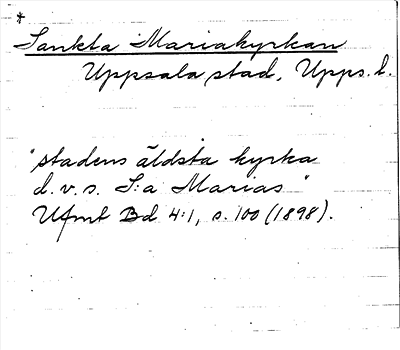 *
Sankta Mariakyrkan
Uppsala stad, Upps. l.
"stadens äldsta kyrka
d.v.s. S:a Marias"
Ufmt Bd 4:1, s. 100 (1898).